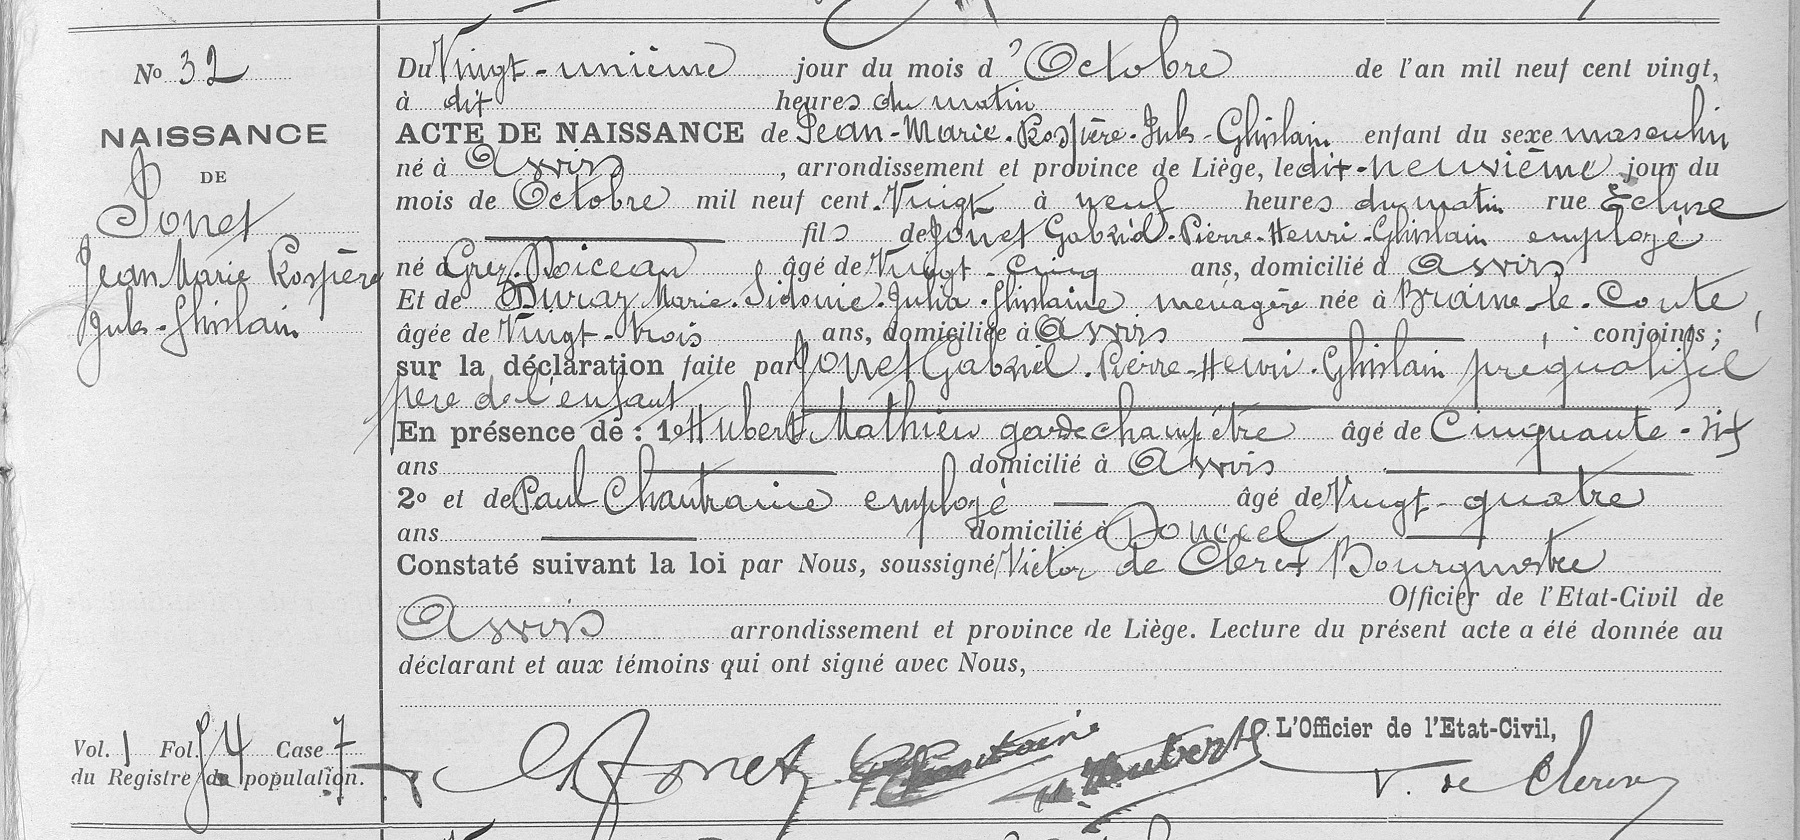 No 32
NAISSANCE
DE
Jonet
Jean Marie Rospère
Jules-Ghislain
Vol. 1 Fol. 84 Case 7
du Registre de population.
Du Vingt-unième jour du mois d'Octobre de l'an mil neuf cent vingt,
à dix heures du matin
ACTE DE NAISSANCE de Jean-Marie-Rospère-Jules-Ghislain enfant du sexe masculin
né à Awirs, arrondissement et province de Liège, le dix-neuvième jour du
mois de Octobre mil neuf cent Vingt à neuf heures du matin rue Ecluse
fils de Jonet Gabriel-Pierre-Henri-Ghislain employé
né à Grez-Doiceau âgé de Vingt-cinq ans, domicilié à Awirs
Et de Duray Marie-Sidonie-Julia-Ghislaine ménagère née à Braine-le-Comte,
âgée de Vingt-trois ans, domiciliée à Awirs conjoints;
sur la déclaration faite par Jonet Gabriel-Pierre-Henri-Ghislain préqualifié
père de l'enfant
En présence de : 1o Hubert Mathieu garde champêtre âgé de Cinquante-six
ans domicilié à Awirs
2o et de Paul Chantraine employé âgé de Vingt-quatre
ans domicilié à Donceel
Constaté suivant la loi par Nous, soussigné Victor de Clercx Bourgmestre
Officier de l'Etat-Civil de
Awirs arrondissement et province de Liège. Lecture du présent acte a été donnée au
déclarant et aux témoins qui ont signé avec Nous,
L'Officier de l'Etat-Civil,
G Jonet P Chantraine M. Hubert V. de Clercx